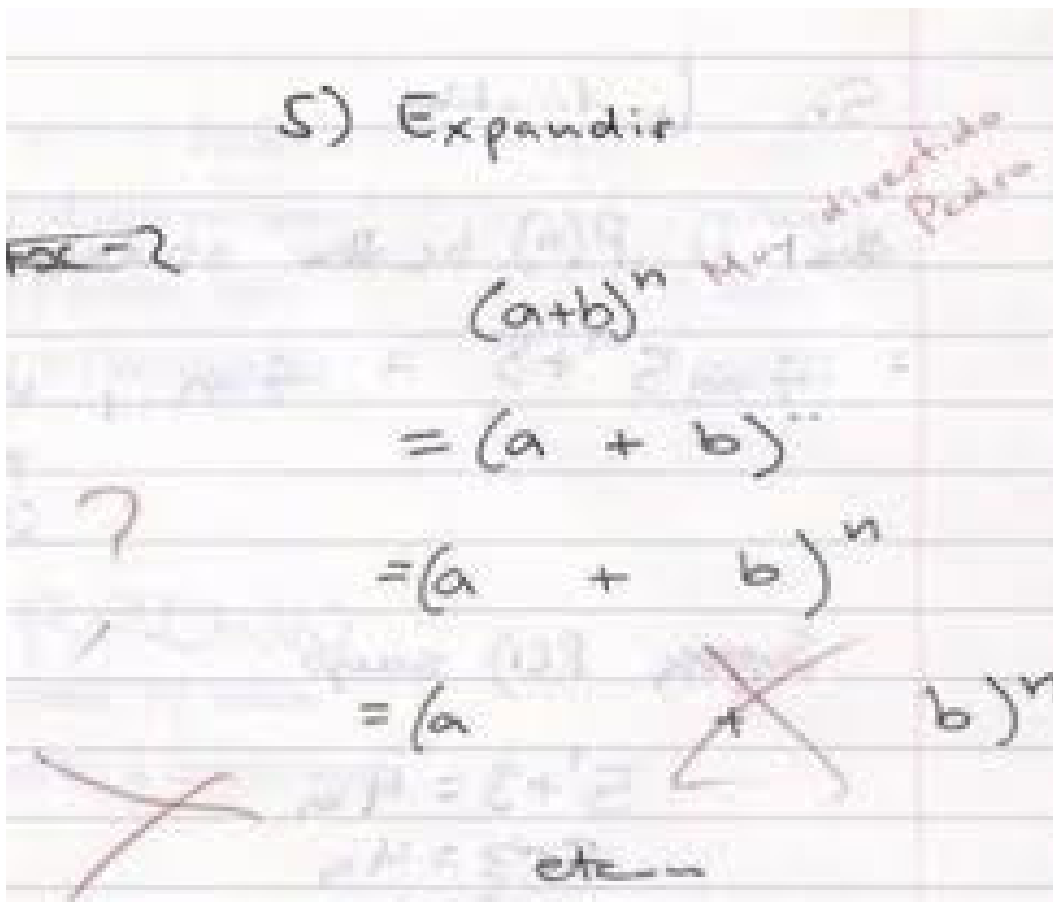 5) Expandir
Muy divertido
Pedro
(a+b)^n
= (a + b)^n
?
= (a + b)^n
= (a + b)^n
etc...